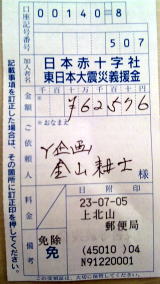 口座記号番号
00140=8
507
加入者名
日本赤十字社
東日本大震災義援金
金額
千百十万千百十円
¥62576
ご依頼人
*おなまえ
Y企画
金山耕士
様
料金
日附印
23-07-05
上北山
郵便局
備考
免除
免除
(45010)04
N91220001
記載事項を訂正した場合は、その箇所に訂正印を押してください。